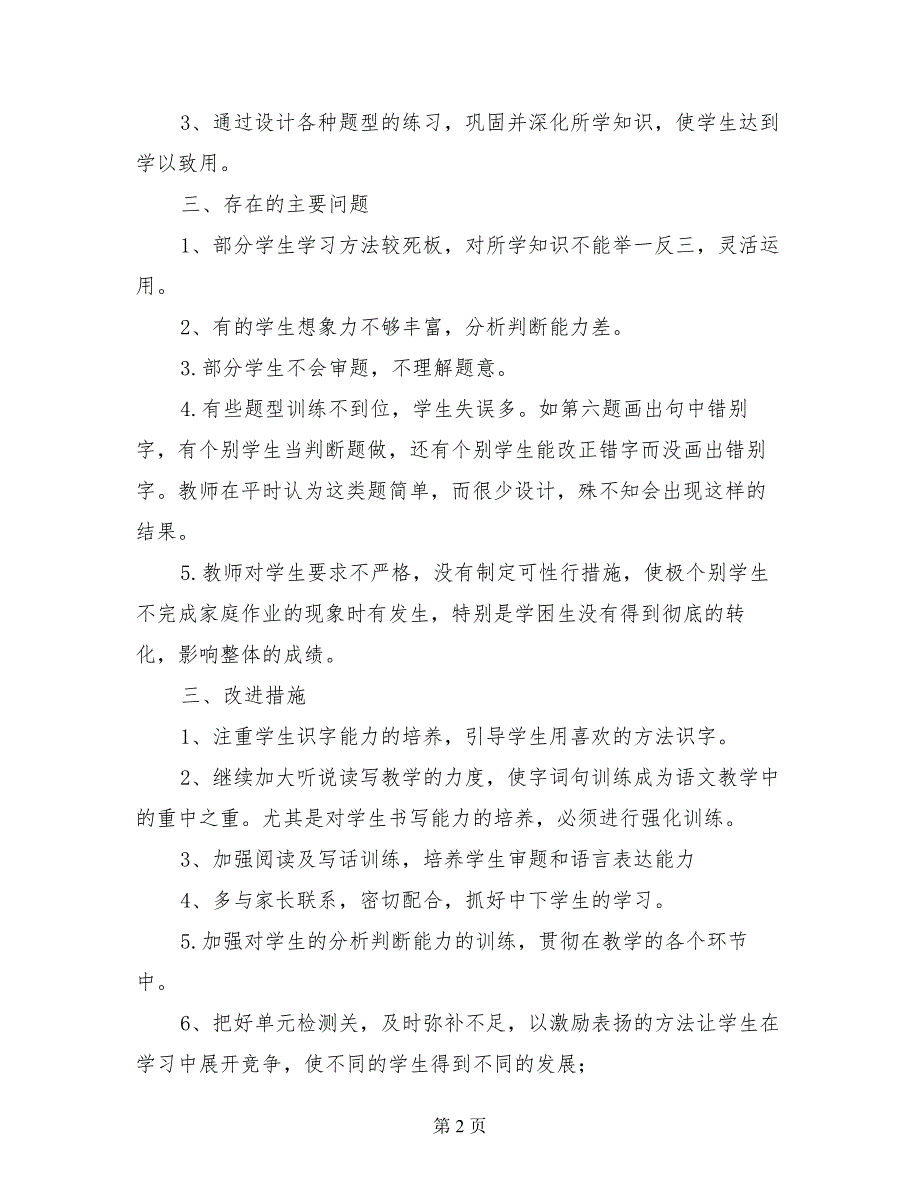 3、通过设计各种题型的练习，巩固并深化所学知识，使学生达到
学以致用。
三、存在的主要问题
1、部分学生学习方法较死板，对所学知识不能举一反三，灵活运
用。
2、有的学生想象力不够丰富，分析判断能力差。
3.部分学生不会审题，不理解题意。
4.有些题型训练不到位，学生失误多。如第六题画出句中错别
字，有个别学生当判断题做，还有个别学生能改正错字而没画出错别
字。教师在平时认为这类题简单，而很少设计，殊不知会出现这样的
结果。
5.教师对学生要求不严格，没有制定可性行措施，使极个别学生
不完成家庭作业的现象时有发生，特别是学困生没有得到彻底的转
化，影响整体的成绩。
三、改进措施
1、注重学生识字能力的培养，引导学生用喜欢的方法识字。
2、继续加大听说读写教学的力度，使字词句训练成为语文教学中
的重中之重。尤其是对学生书写能力的培养，必须进行强化训练。
3、加强阅读及写话训练，培养学生审题和语言表达能力
4、多与家长联系，密切配合，抓好中下学生的学习。
5.加强对学生的分析判断能力的训练，贯彻在教学的各个环节
中。
6、把好单元检测关，及时弥补不足，以激励表扬的方法让学生在
学习中展开竞争，使不同的学生得到不同的发展；
第 2 页